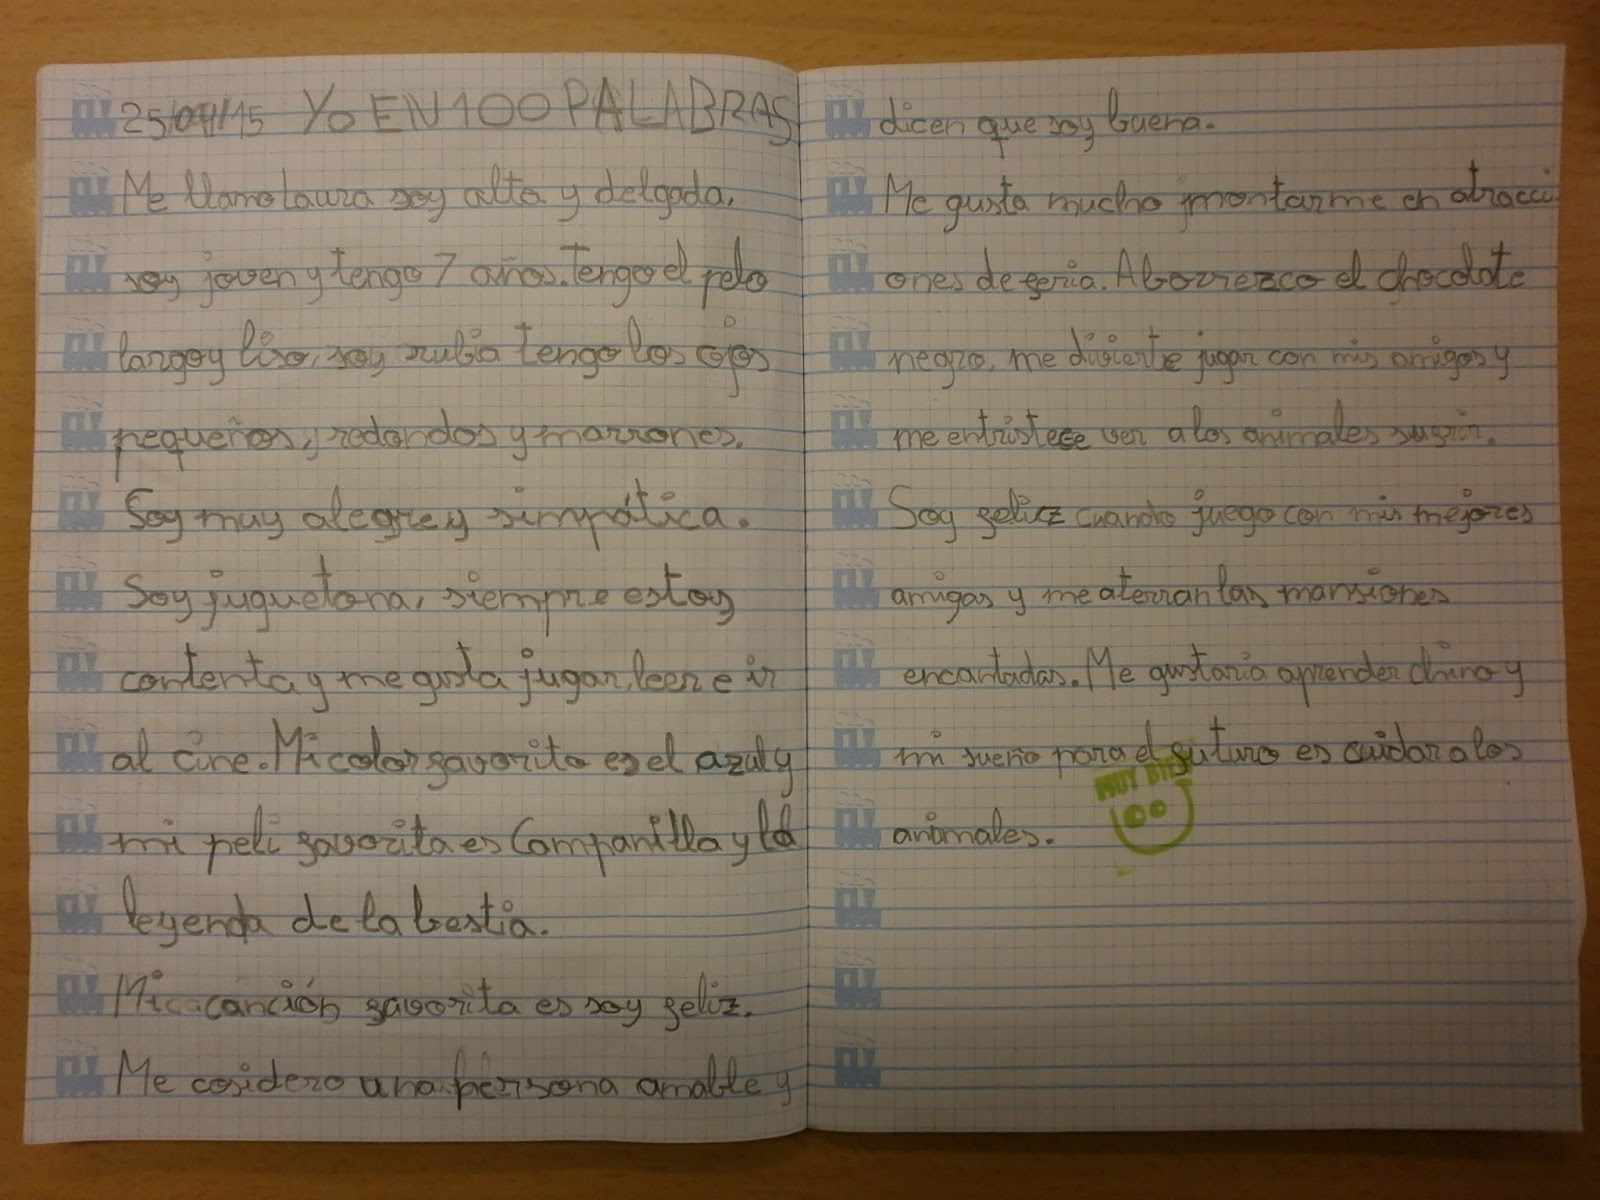 25/04/15 Yo EN 100 PALABRAS
Me llamo Laura soy alta y delgada,
soy joven y tengo 7 años. Tengo el pelo
largo y liso, soy rubia tengo los ojos
pequeños, redondos y marrones.
Soy muy alegre y simpática.
Soy juguetona, siempre estoy
contenta y me gusta jugar, leer e ir
al cine. Mi color favorito es el azul y
mi peli favorita es Campanilla y la
leyenda de la bestia.
Mi cacanción favorita es soy feliz.
Me cosidero una persona amable y
dicen que soy buena.
Me gusta mucho montarme en atracci
ones de feria. Aborrezco el chocolate
negro, me divierte jugar con mis amigos y
me entristece ver a los animales sufrir.
Soy feliz cuando juego con mis mejores
amigas y me aterran las mansiones
encantadas. Me gustaria aprender chino y
mi sueño para el futuro es cuidar a los
animales.
MUY BIEN